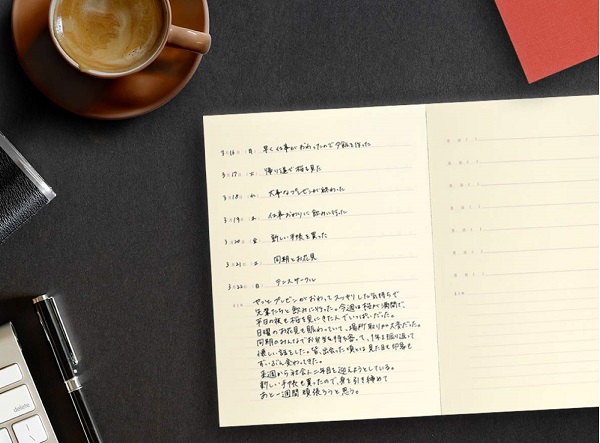 3 16 (月) 早く仕事がおわったので夕飯を作った
3 17 (火) 帰り道で桜を見た
3 18 (水) 大事なプレゼンが終わった
3 19 (木) 仕事おわりに飲みに行った
3 20 (金) 新しい手帳を買った
3 21 (土) 同期とお花見
3 22 (日) テニスサークル
やっとプレゼンがおわってスッキリした気持ちで
先輩たちと飲みに行った。今週は桜が満開で、
平日の夜も桜を見にきた人でいっぱいだった。
日曜のお花見も賑わっていて、場所取りが大変だった。
同期のみんなでお弁当を持ち寄って、1年を振り返って
懐しい話をした。皆、出会った頃とは見た目も印象も
ずいぶん変わってきた。
来週から社会人二年目を迎えようとしている。
新しい手帳も買ったので、身を引き締めて
あと一週間頑張ろうと思う。
delete